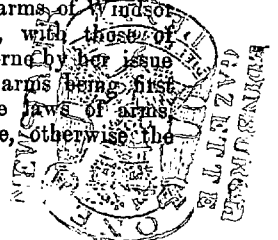 arms of Windsor
, with those of
borne by her issue
arms being first
e laws of arms,
e, otherwise the
EDINBURGH
GAZETTE